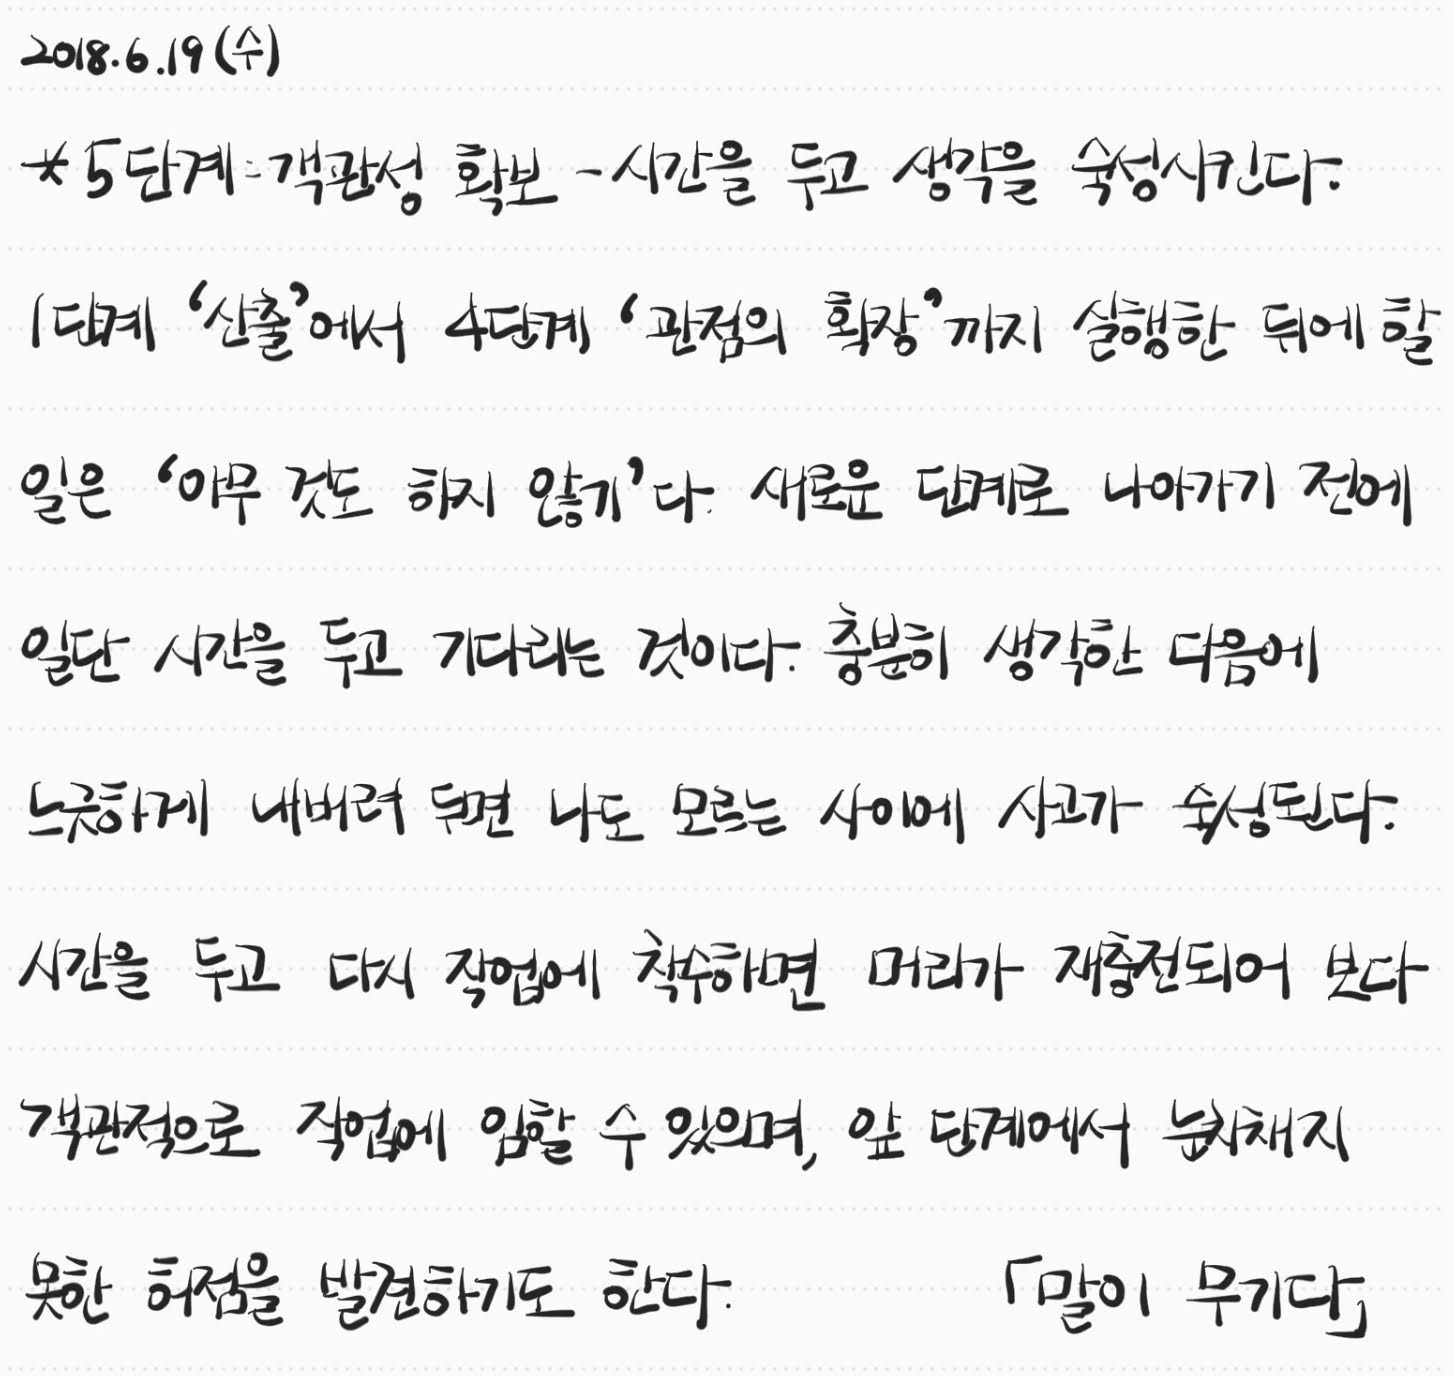 2018.6.19(수)
*5단계:객관성 확보-시간을 두고 생각을 숙성시킨다.
1단계 ‘산출’에서 4단계 ‘관점의 확장’까지 실행한 뒤에 할
일은 ‘아무 것도 하지 않기’다. 새로운 단계로 나아가기 전에
일단 시간을 두고 기다리는 것이다. 충분히 생각한 다음에
느긋하게 내버려 두면 나도 모르는 사이에 사고가 숙성된다.
시간을 두고 다시 작업에 착수하면 머리가 재충전되어 보다
객관적으로 작업에 임할 수 있으며, 앞 단계에서 눈치채지
못한 허점을 발견하기도 한다. 「말이 무기다」